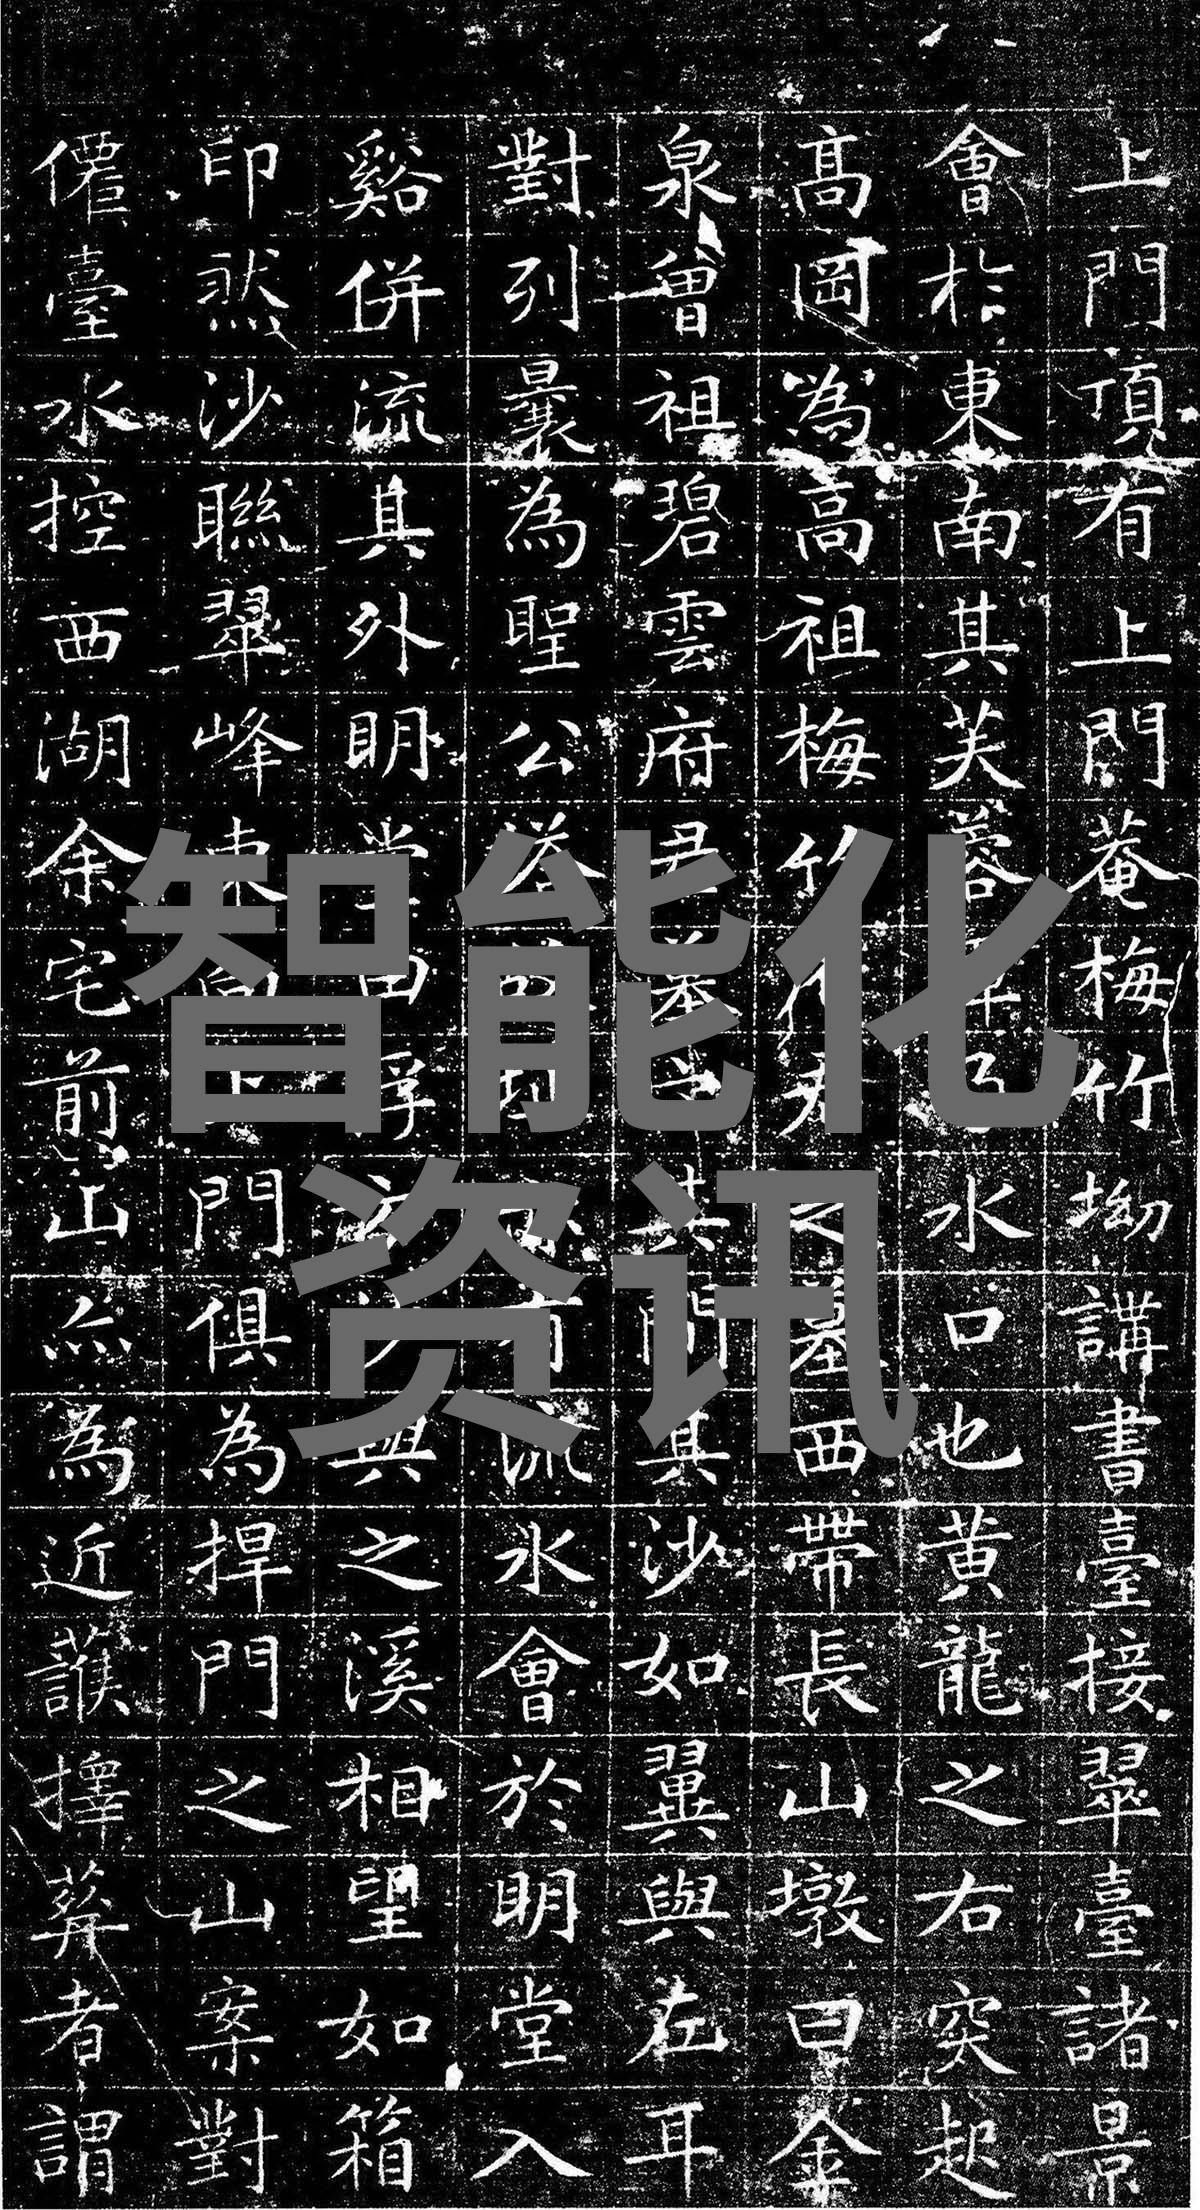 上門頂有上門菴梅竹坳講書臺接翠臺諸景
會於東南其芙蓉水口也黃龍之右突起
高岡為高祖梅竹之墓西帶長山墩曰金
泉曾祖碧雲府君墓其間其沙如翼與左耳
對列曩為聖公塔有流水會於明堂入
谿併流其外明堂田浮與之溪相望如箱
印然沙聯翠峰東門俱為捍門之山案對
僊臺水控西湖余宅前山亦為近護擇葬者謂
智能化
资讯